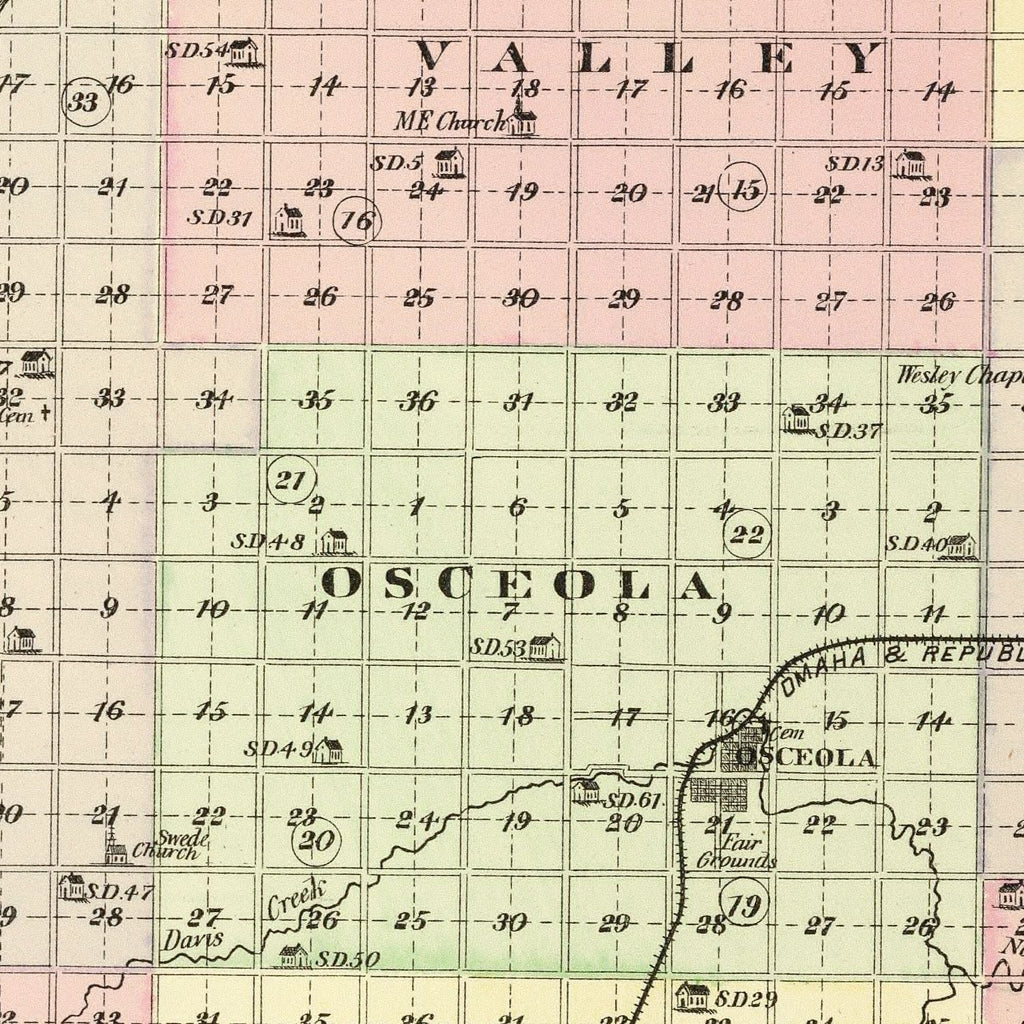 S.D.54
VALLEY
17 16 15 14 13 18 17 16 15 14
33
M.E. Church
S.D.5
S.D.13
20 21 22 23 24 19 20 21 15 22 23
S.D.31
16
29 28 27 26 25 30 29 28 27 26
7
Wesley
32 33 34 35 36 31 32 33 34 35
Cem
S.D.37
21
5 4 3 2 1 6 5 4 3 2
22
S.D.48
S.D.40
OSCEOLA
8 9 10 11 12 7 8 9 10 11
S.D.53
OMAHA & REPUBL
7 16 15 14 13 18 17 16 15 14
Cem
S.D.49
OSCEOLA
S.D.61
21 22 23 24 19 20 21 22 23
20
Swede
Church
Fair
Grounds
S.D.47
Creek
19
9 28 27 26 25 30 29 28 27 26
Davis
S.D.50
S.D.29